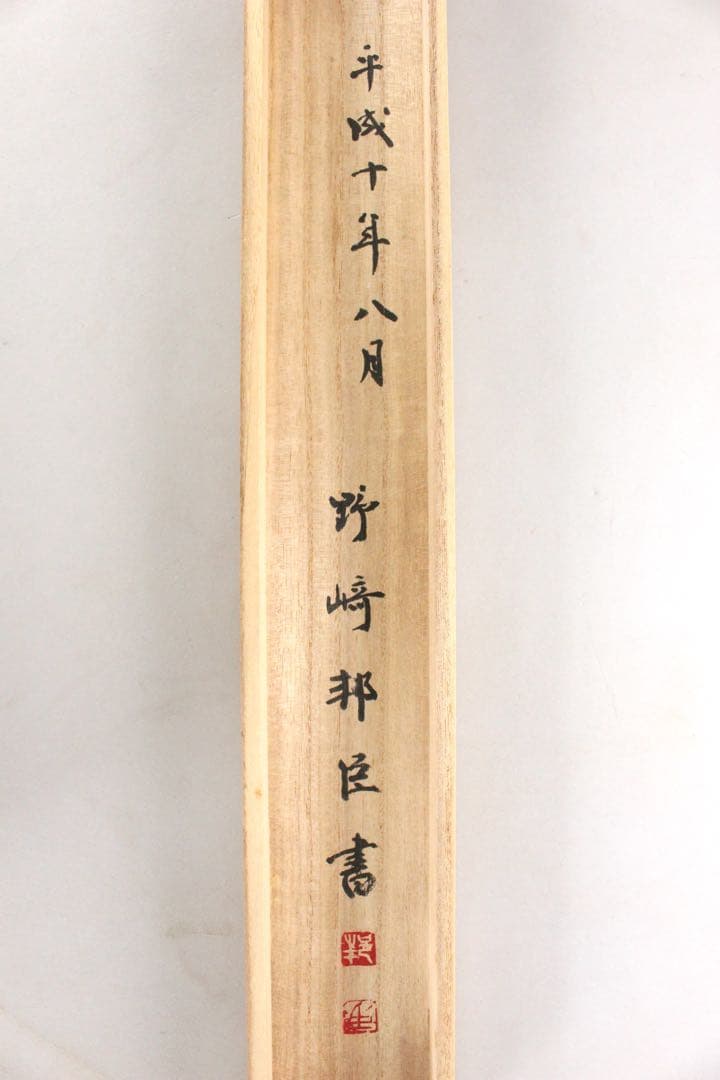 平成十年八月 野﨑邦臣書